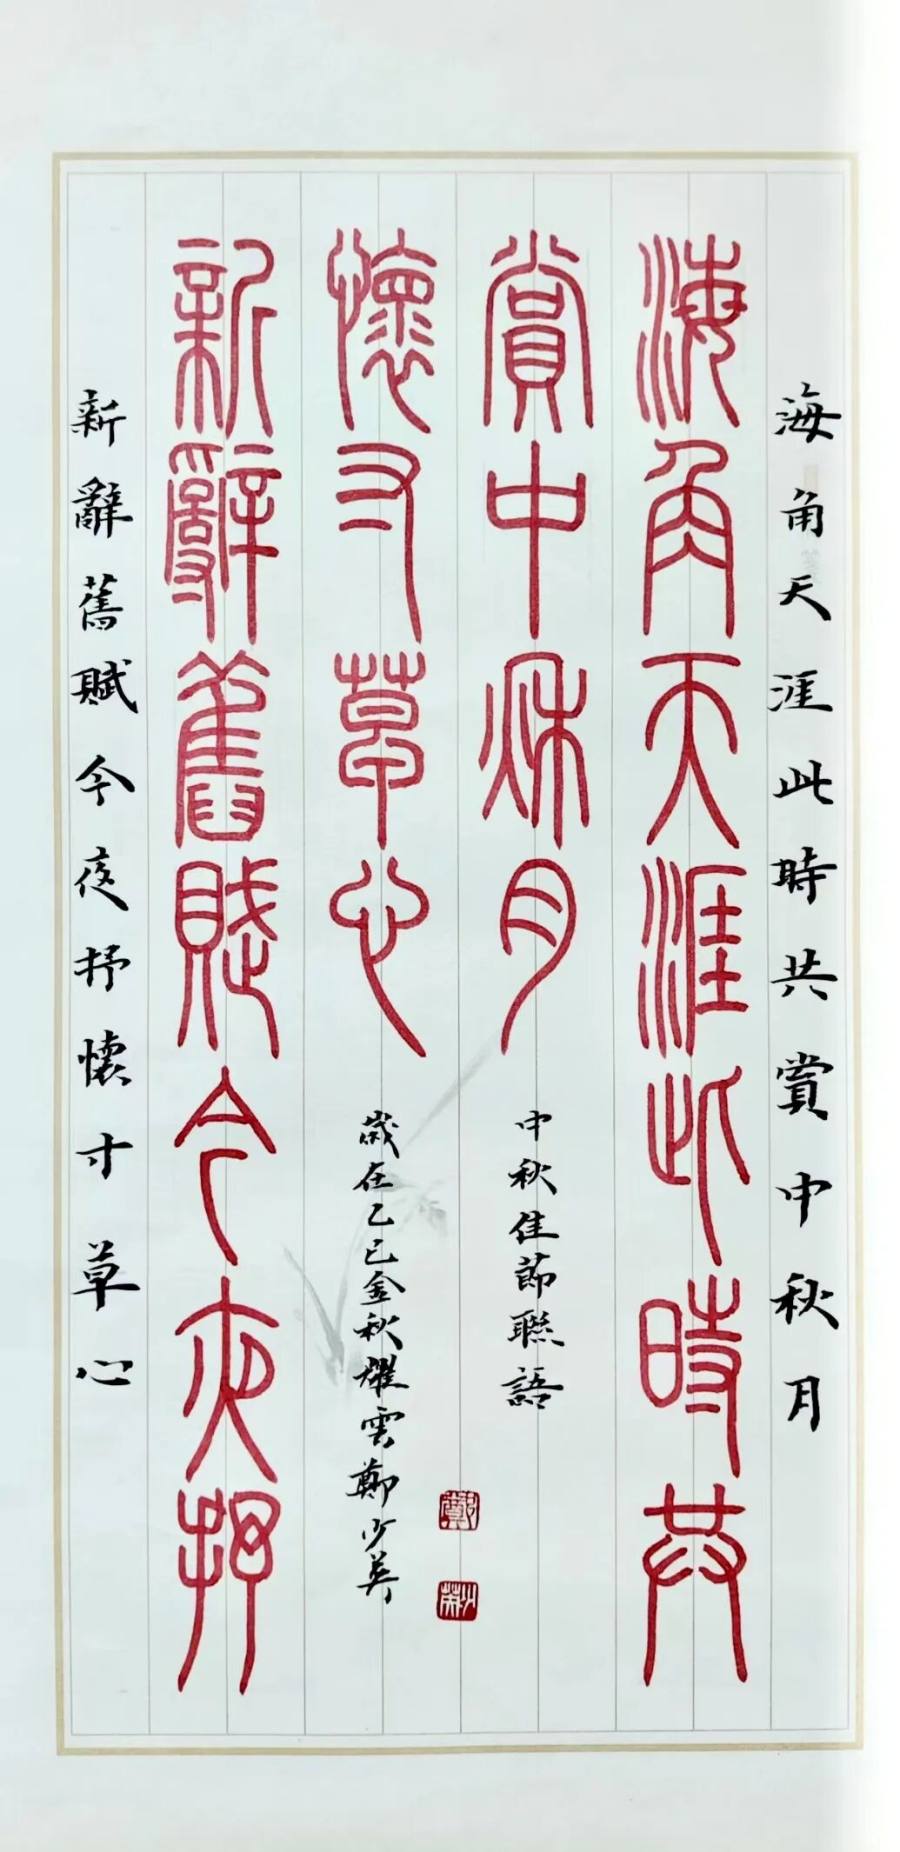 海角天涯此時共賞中秋月
海角天涯此時共
賞中秋月
中秋佳節聯語
懷寸草心
歲在乙巳金秋耀雲鄭少英
新辭舊賦今夜抒
新辭舊賦今夜抒懷寸草心